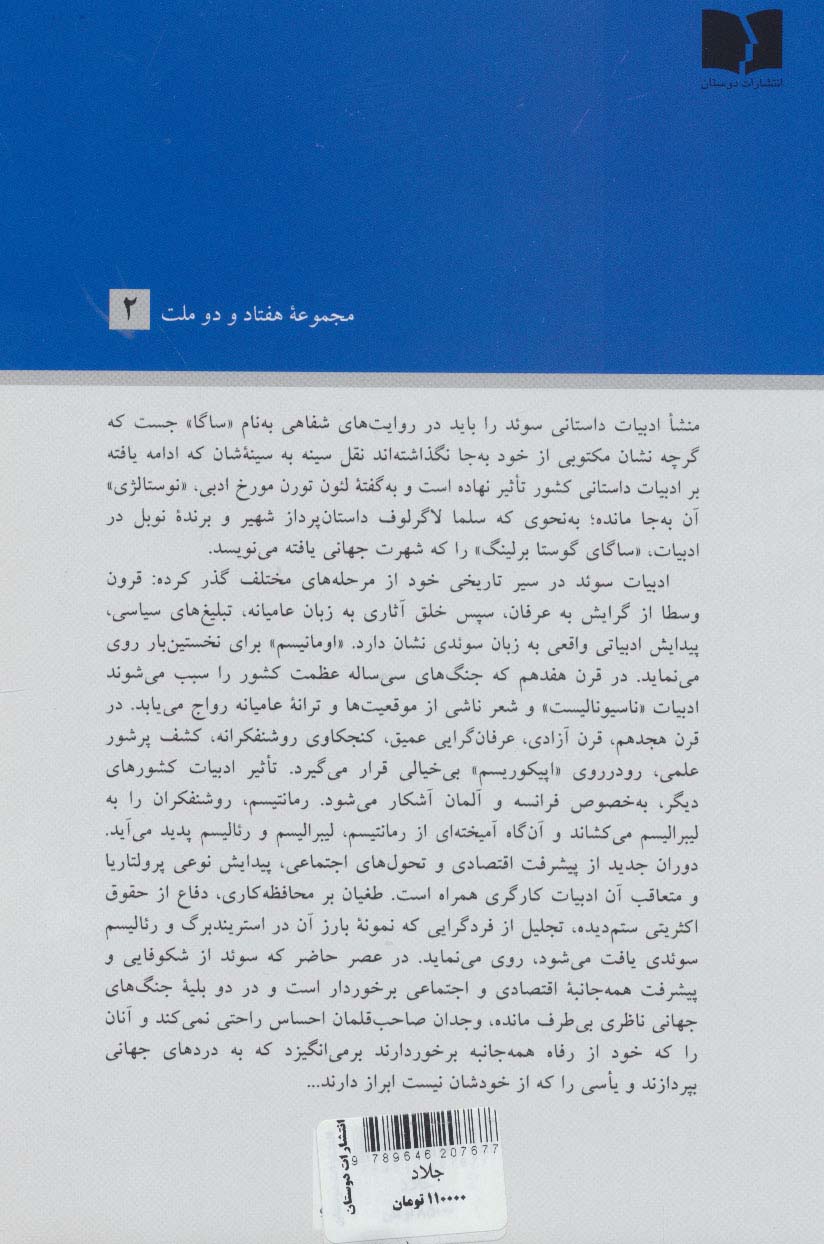 انتشارات دوستان
مجموعهٔ هفتاد و دو ملت ۲
منشأ ادبیات داستانی سوئد را باید در روایت‌های شفاهی به‌نام «ساگا» جست که
گرچه نشان مکتوبی از خود به‌جا نگذاشته‌اند نقل سینه به سینه‌شان که ادامه یافته
بر ادبیات داستانی کشور تأثیر نهاده است و به‌گفتهٔ لئون تورن مورخ ادبی، «نوستالژی»
آن به‌جا مانده؛ به‌نحوی که سلما لاگرلوف داستان‌پرداز شهیر و برندهٔ نوبل در
ادبیات، «ساگای گوستا برلینگ» را که شهرت جهانی یافته می‌نویسد.
ادبیات سوئد در سیر تاریخی خود از مرحله‌های مختلف گذر کرده: قرون
وسطا از گرایش به عرفان، سپس خلق آثاری به زبان عامیانه، تبلیغ‌های سیاسی،
پیدایش ادبیاتی واقعی به زبان سوئدی نشان دارد. «اومانیسم» برای نخستین‌بار روی
می‌نماید. در قرن هفدهم که جنگ‌های سی‌ساله عظمت کشور را سبب می‌شوند
ادبیات «ناسیونالیست» و شعر ناشی از موقعیت‌ها و ترانهٔ عامیانه رواج می‌یابد. در
قرن هجدهم، قرن آزادی، عرفان‌گرایی عمیق، کنجکاوی روشنفکرانه، کشف پرشور
علمی، رودرروی «اپیکوریسم» بی‌خیالی قرار می‌گیرد. تأثیر ادبیات کشورهای
دیگر، به‌خصوص فرانسه و آلمان آشکار می‌شود. رمانتیسم، روشنفکران را به
لیبرالیسم می‌کشاند و آن‌گاه آمیخته‌ای از رمانتیسم، لیبرالیسم و رئالیسم پدید می‌آید.
دوران جدید از پیشرفت اقتصادی و تحول‌های اجتماعی، پیدایش نوعی پرولتاریا
و متعاقب آن ادبیات کارگری همراه است. طغیان بر محافظه‌کاری، دفاع از حقوق
اکثریتی ستم‌دیده، تجلیل از فردگرایی که نمونهٔ بارز آن در استریندبرگ و رئالیسم
سوئدی یافت می‌شود، روی می‌نماید. در عصر حاضر که سوئد از شکوفایی و
پیشرفت همه‌جانبهٔ اقتصادی و اجتماعی برخوردار است و در دو بلیهٔ جنگ‌های
جهانی ناظری بی‌طرف مانده، وجدان صاحب‌قلمان احساس راحتی نمی‌کند و آنان
را که خود از رفاه همه‌جانبه برخوردارند برمی‌انگیزد که به دردهای جهانی
بپردازند و یأسی را که از خودشان نیست ابراز دارند...
انتشارات دوستان
9 789646 207677
جلاد
۱۱۰۰۰۰ تومان